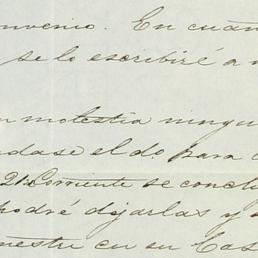 nvenio. En cuan
se lo escribiré a
n molestia ningu
dase el do para
21 Corriente se conclu
podré dejarlas y
mestre en su Cas